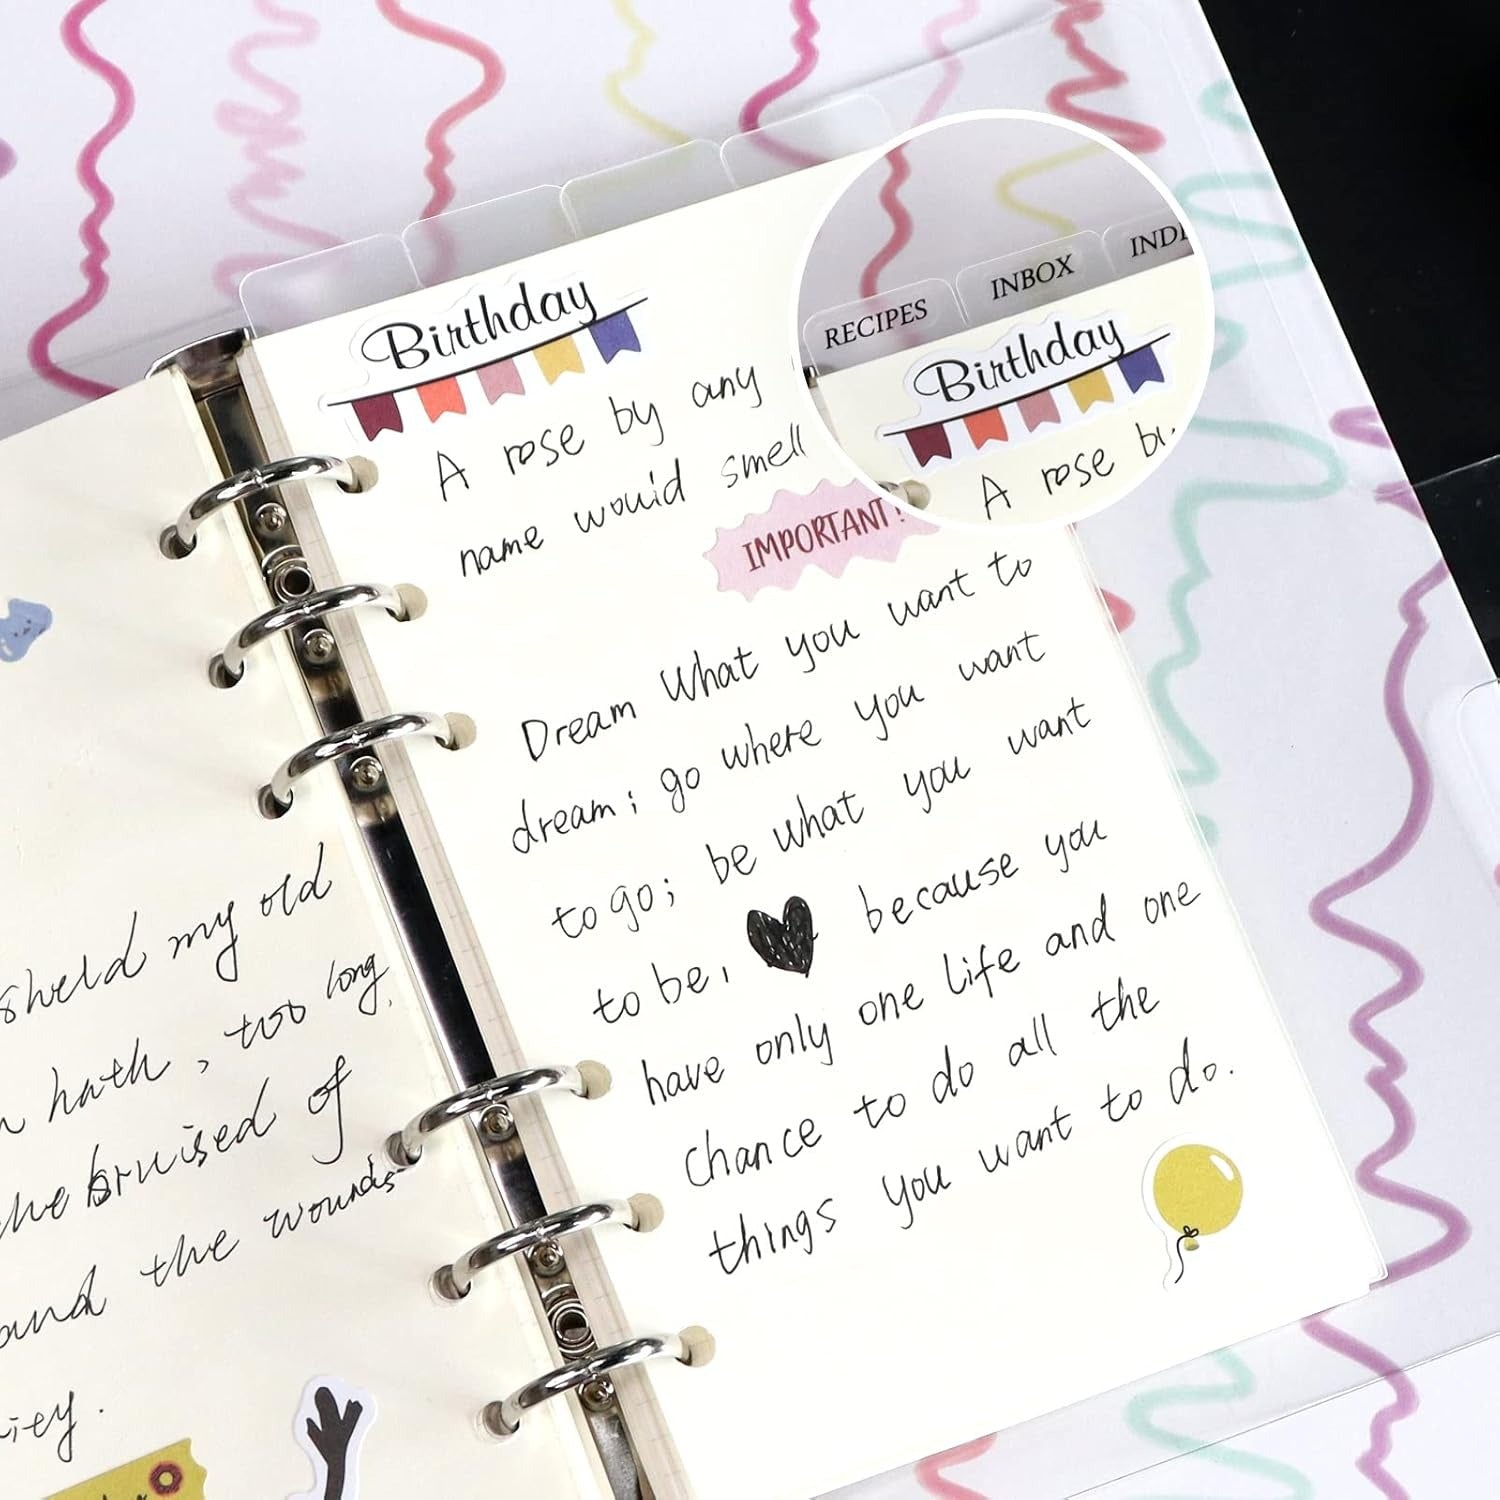 Birthday
A rose by any
name wouid smell
IMPORTANT!
Dream What you want to
dream; go where you want
to go; be what you want
to be, because you
have only one life and one
chance to do all the
things you want to do.
RECIPES
INBOX
Birthday
A rose
my old
hath, too long,
bruised of
and the wounds